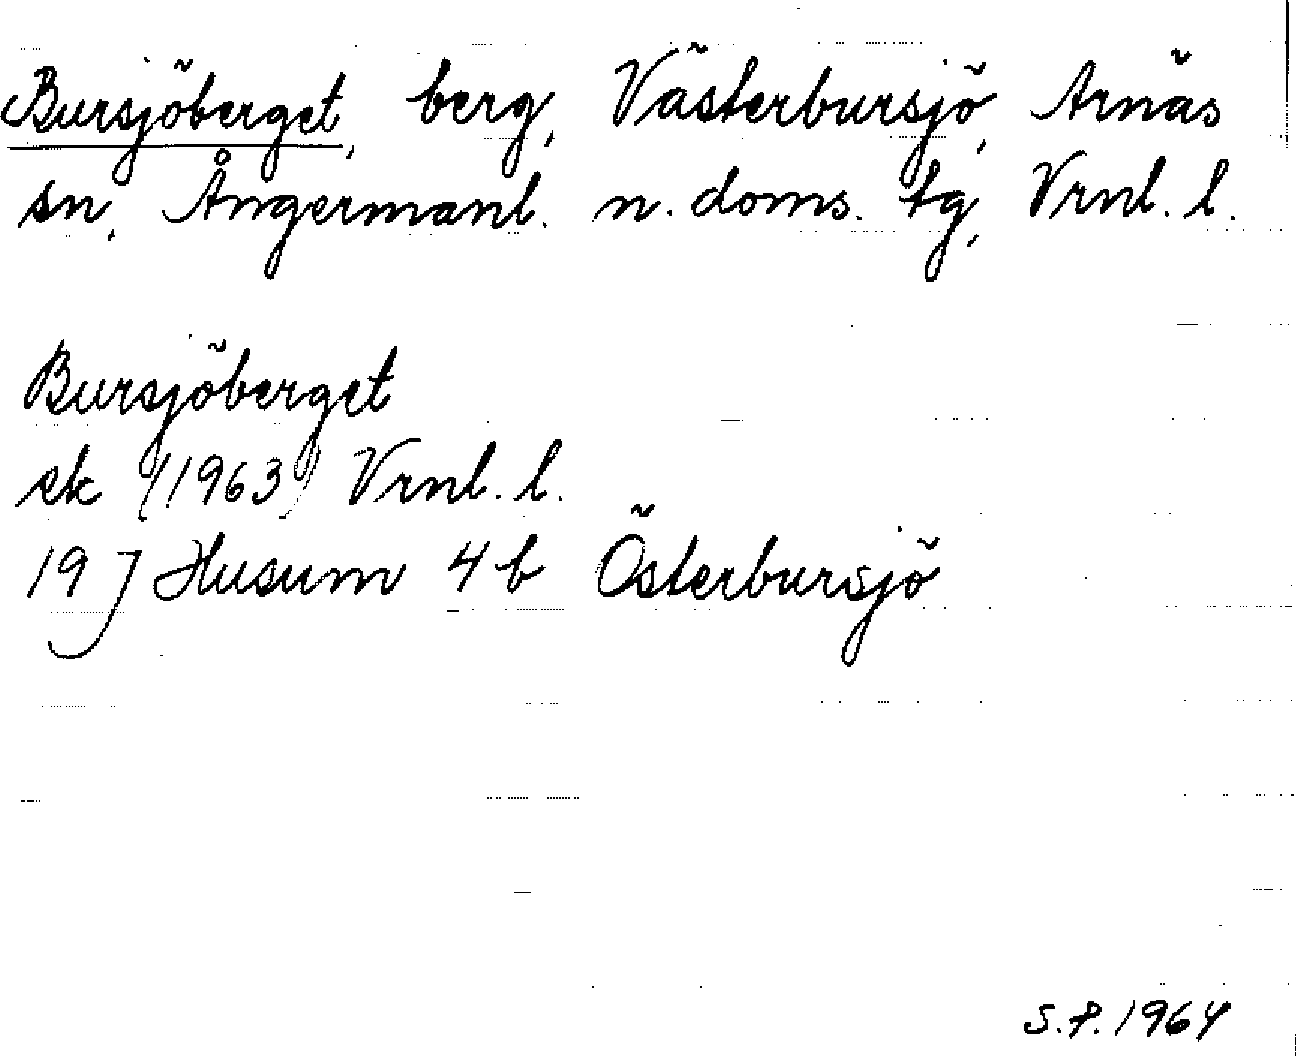 Bursjöberget, berg, Västerbursjö, Arnäs
sn, Ångermanl. n. doms. tg, Vrnl. l.
Bursjöberget
ek (1963) Vrnl. l.
19 J Husum 4 b Österbursjö
S.P. 1964